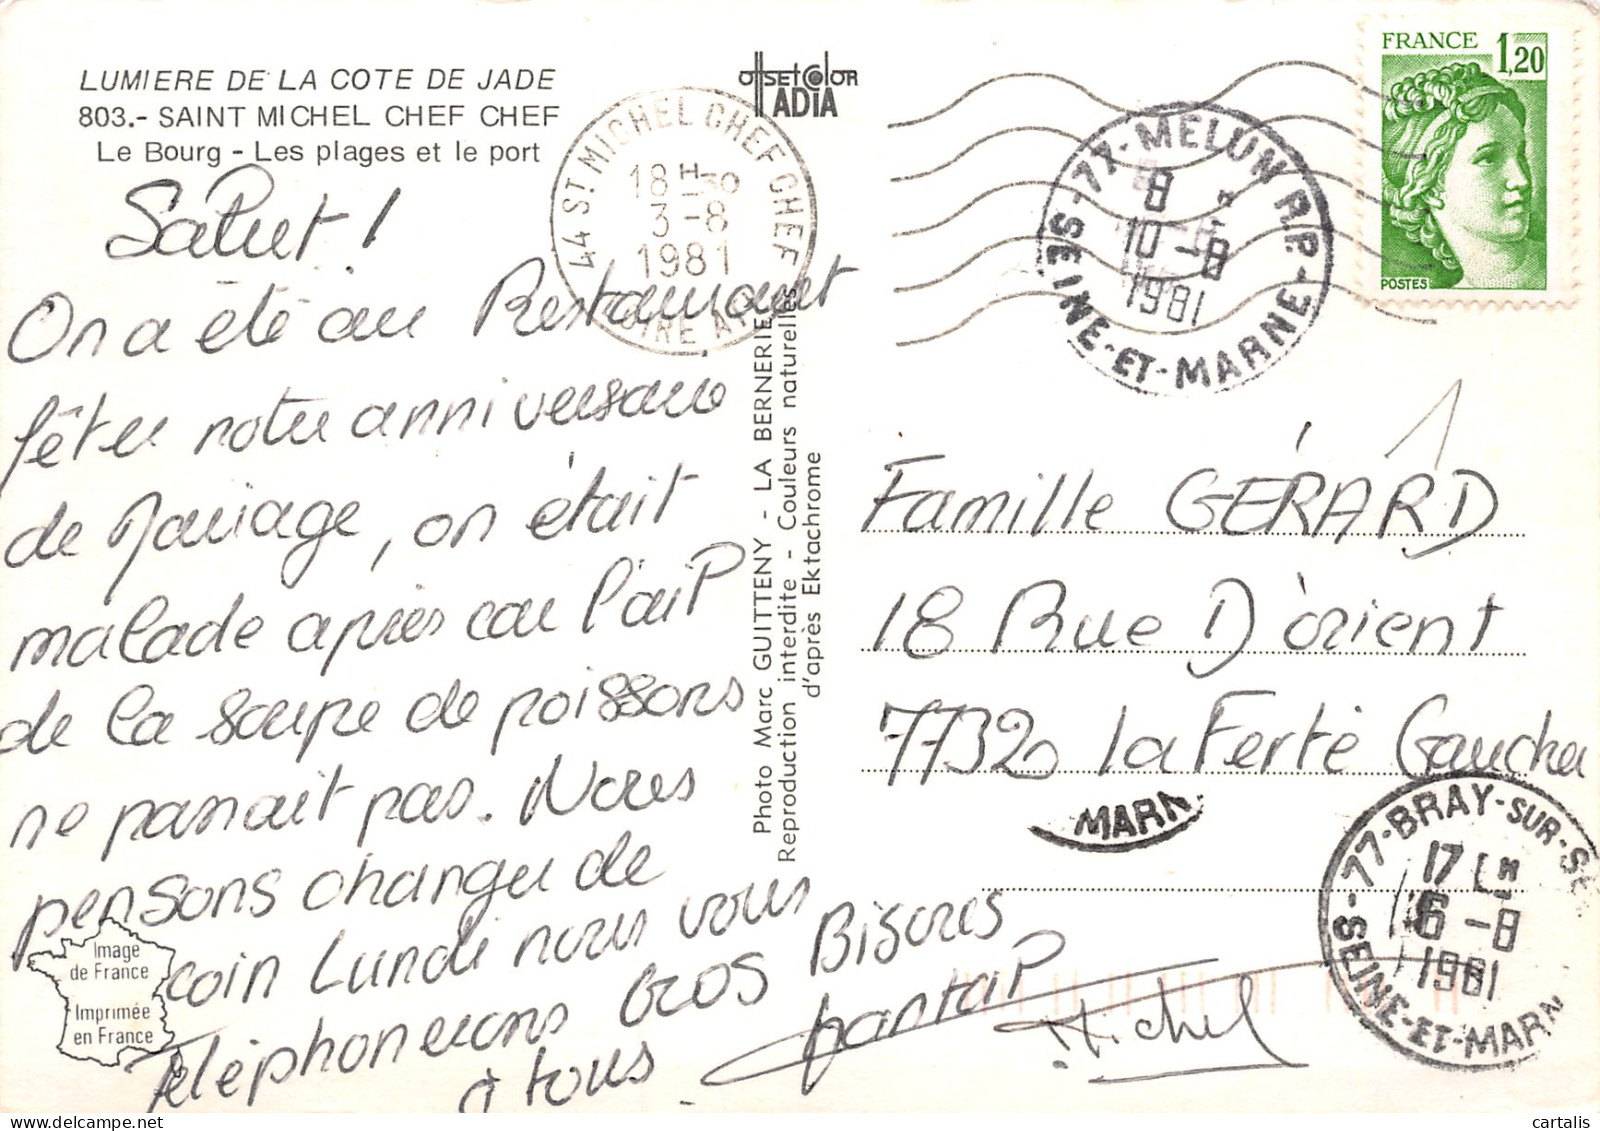 LUMIERE DE LA COTE DE JADE
803.- SAINT MICHEL CHEF CHEF
Le Bourg - Les plages et le port
offset color
ADIA
44 ST MICHEL CHEF CHEF
18H30
3-8
1981
LOIRE
77-MELUN R.P.-
8
10-8
1981
SEINE-ET-MARNE
FRANCE 1,20
POSTES
Salut !
On a été au Restaurant
fêter notre anniversaire
de Mariage, on était
malade après car l'ail
de la soupe de poissons
ne passait pas. Nous
pensons changer de
coin Lundi nous vous
Téléphonerons GROS BISOUS
à tous
Chantal
Michel
Image
de France
Imprimée
en France
Photo Marc GUITTENY - LA BERNERIE
Reproduction interdite - Couleurs naturelles
d'après Ektachrome
1
Famille GÉRARD
18 Rue D'orient
77320 La Ferté Gaucher
MARN
77-BRAY-SUR-SE
17 H
6-8
1981
SEINE-ET-MARN
cartalis